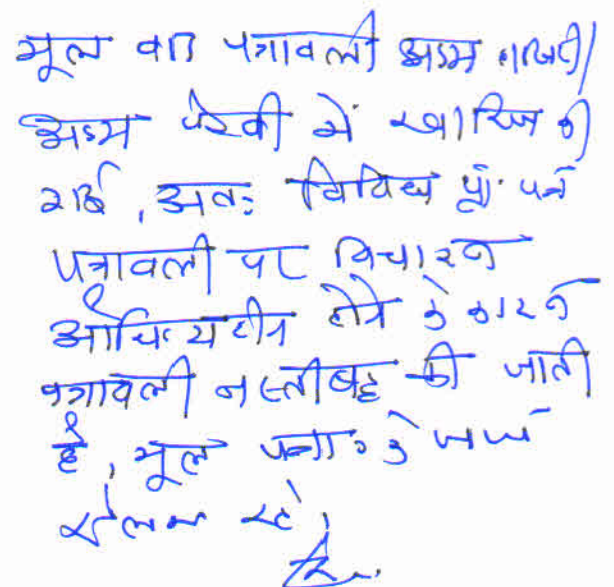 मूल वाद पत्रावली अदम हाजिरी/
अदम पैरवी में खारिज की
गई, अतः विविध प्रा० पत्र
पत्रावली पर विचारण
औचित्यहीन होने के कारण
पत्रावली नस्तीबद्ध की जाती
है, मूल पत्रा० के साथ
संलग्न रहे।